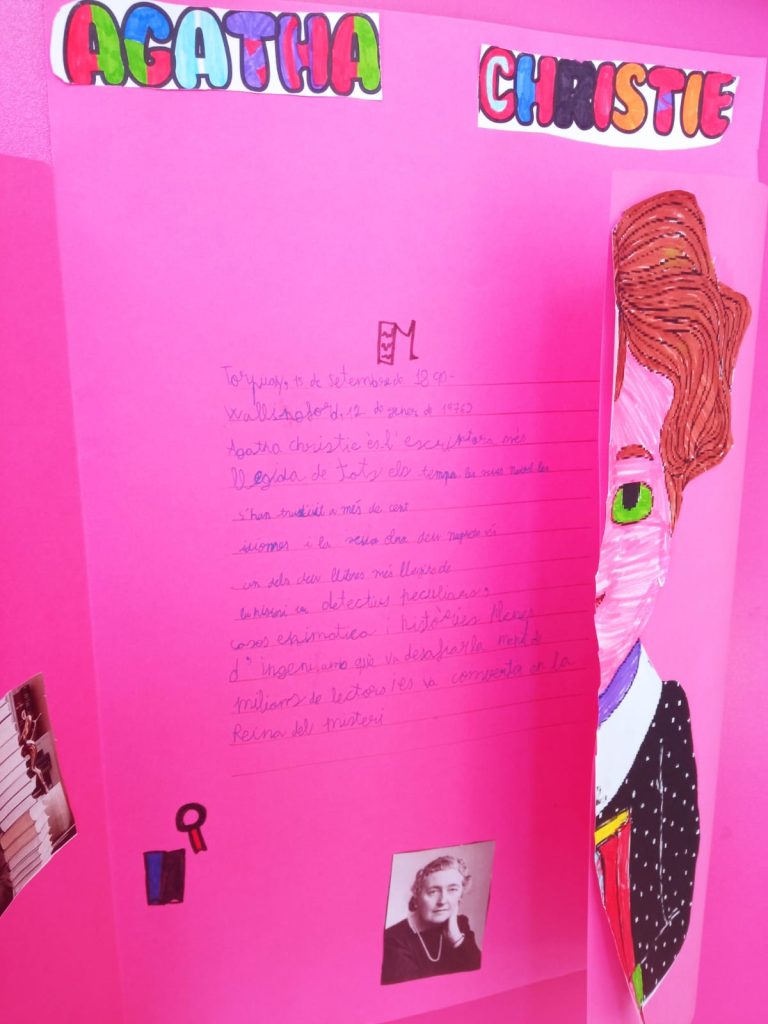 AGATHA CHRISTIE
Torquay, 15 de setembre de 1890-
Wallingford, 12 de gener de 1976)
Agatha christie és l'escriptora més
llegida de tots els temps les seves novel·les
s'han traduit a més de cent
idiomes i la seva obra deu negrets és
un dels deu llibres més llegits de
detectius peculiars,
casos enimatica i històries plenes
d'ingeni amb què va desafiar la ment de
milions de lectors i es va convertir en la
Reina del misteri